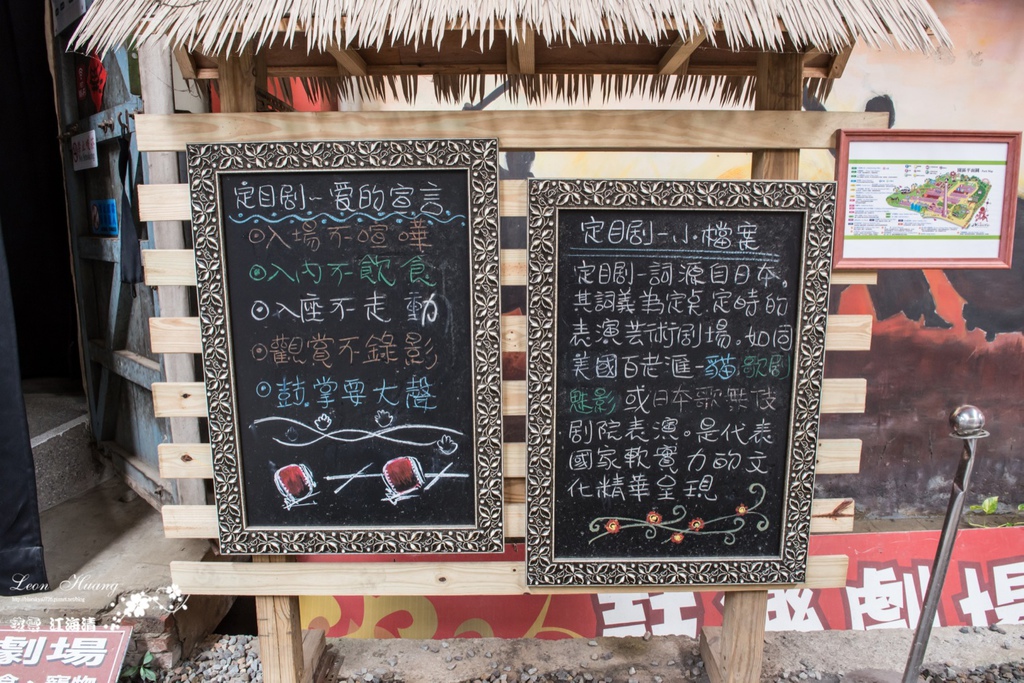 定目剧-爱的宣言
入場不喧嘩
入内不飲食
入座不走動
觀賞不錄影
鼓掌要大聲
定目剧-小檔案
定目剧-詞源自日本,
其詞義為定桌.定時的
表演芸術剧場。如同
美國百老滙-貓.歌剧
魅影或日本歌舞伎
剧院表演。是代表
國家軟實力的文
化精華呈現
Leon Huang
江海清
劇場
劇場